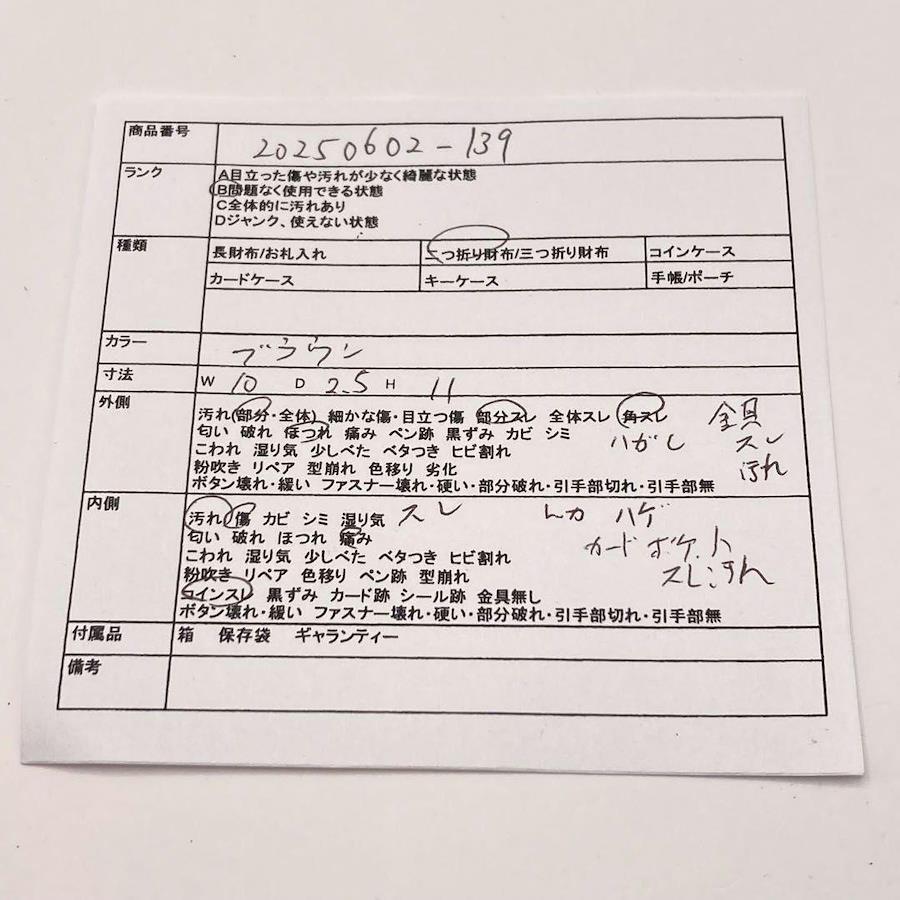 商品番号 20250602-139
ランク A目立った傷や汚れが少なく綺麗な状態
B問題なく使用できる状態
C全体的に汚れあり
Dジャンク、使えない状態
種類 長財布/お札入れ 二つ折り財布/三つ折り財布 コインケース
カードケース キーケース 手帳/ポーチ
カラー ブラウン
寸法 W 10 D 2.5 H 11
外側 汚れ(部分・全体) 細かな傷・目立つ傷 部分スレ 全体スレ 角スレ 金具
匂い 破れ ほつれ 痛み ペン跡 黒ずみ カビ シミ ハガし スレ
こわれ 湿り気 少しべた ベタつき ヒビ割れ 汚れ
粉吹き リペア 型崩れ 色移り 劣化
ボタン壊れ・緩い ファスナー壊れ・硬い・部分破れ・引手部切れ・引手部無
内側 汚れ 傷 カビ シミ 湿り気 スレ ハゲ
匂い 破れ ほつれ 痛み カードポケット
こわれ 湿り気 少しべた ベタつき ヒビ割れ
粉吹き リペア 色移り ペン跡 型崩れ
コインスレ 黒ずみ カード跡 シール跡 金具無し
ボタン壊れ・緩い ファスナー壊れ・硬い・部分破れ・引手部切れ・引手部無
付属品 箱 保存袋 ギャランティー
備考